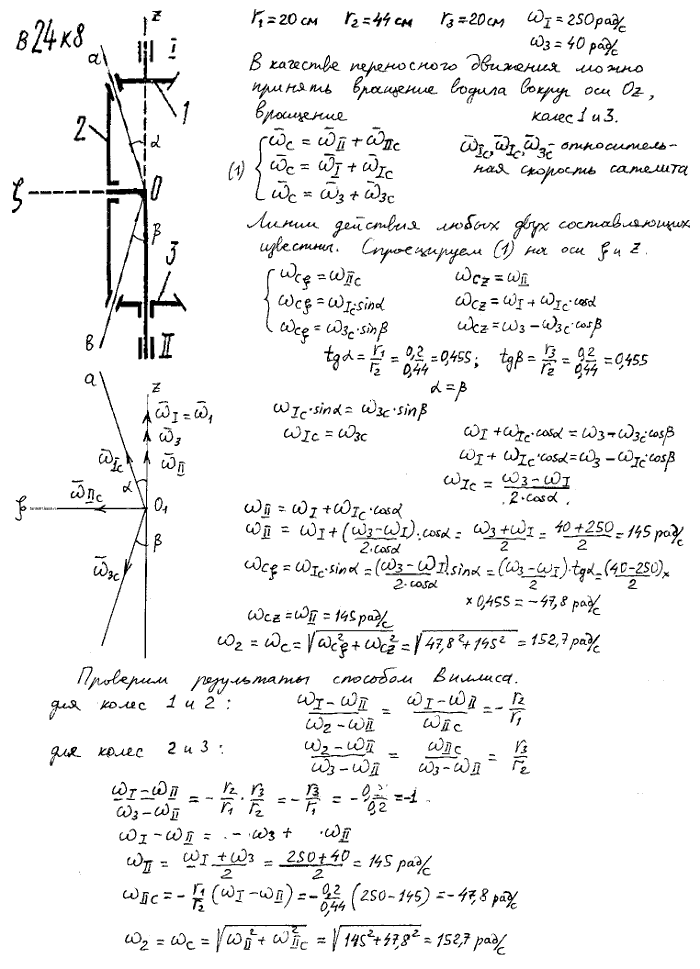 В24К8
z
I
a
1
2
α
ξ
O
β
3
в
II
r₁=20см r₂=44см r₃=20см ω_I=250 рад/с
ω₃=40 рад/с
В качестве переносного движения можно
принять вращение водила вокруг оси Oz,
вращение колес 1 и 3.
(1) { ω̄_c = ω̄_II + ω̄_IIc
ω̄_c = ω̄_I + ω̄_Ic
ω̄_c = ω̄_3 + ω̄_3c
ω̄_Ic, ω̄_Ic, ω̄_3c - относитель-
ная скорость сателита
Линии действия любых двух составляющих
известны. Спроецируем (1) на оси ξ и z.
{ ω_cξ = ω_IIc ω_cz = ω_II
ω_cξ = ω_Ic·sinα ω_cz = ω_I + ω_Ic·cosα
ω_cξ = ω_3c·sinβ ω_cz = ω_3 − ω_3c·cosβ
tgα = r₁/r₂ = 0,2/0,44 = 0,455; tgβ = r₃/r₂ = 0,2/0,44 = 0,455
α = β
a
z
ω̄_I = ω̄_1
ω̄_3
ω̄_II
ω̄_Ic
α
ω̄_IIc
ξ
O₁
β
ω̄_3c
ω_Ic·sinα = ω_3c·sinβ
ω_Ic = ω_3c ω_I + ω_Ic·cosα = ω_3 − ω_3c·cosβ
ω_I + ω_Ic·cosα = ω_3 − ω_Ic·cosβ
ω_Ic = (ω_3 − ω_I)/(2·cosα)
ω_II = ω_I + ω_Ic·cosα
ω_II = ω_I + (ω_3 − ω_I)/(2·cosα)·cosα = (ω_3 + ω_I)/2 = (40+250)/2 = 145 рад/с
ω_cξ = ω_Ic·sinα = (ω_3 − ω_I)/(2·cosα) sinα = (ω_3 − ω_I)/2·tgα = (40−250)/2 ×
× 0,455 = −47,8 рад/с
ω_cz = ω_II = 145 рад/с
ω_2 = ω_c = √(ω²_cξ + ω²_cz) = √(47,8² + 145²) = 152,7 рад/с
Проверим результаты способом Виллиса.
для колес 1 и 2: (ω_I − ω_II)/(ω_2 − ω_II) = (ω_I − ω_II)/ω_IIc = − r₂/r₁
для колес 2 и 3: (ω_2 − ω_II)/(ω_3 − ω_II) = ω_IIc/(ω_3 − ω_II) = r₃/r₂
(ω_I − ω_II)/(ω_3 − ω_II) = − r₂/r₁ · r₃/r₂ = − r₃/r₁ = − 0,2/0,2 = −1
ω_I − ω_II = . − · ω_3 + · ω_II
ω_II = (ω_I + ω_3)/2 = (250+40)/2 = 145 рад/с
ω_IIc = − r₁/r₂ (ω_I − ω_II) = − 0,2/0,44 (250 − 145) = −47,8 рад/с
ω_2 = ω_c = √(ω_II² + ω²_IIc) = √(145² + 47,8²) = 152,7 рад/с